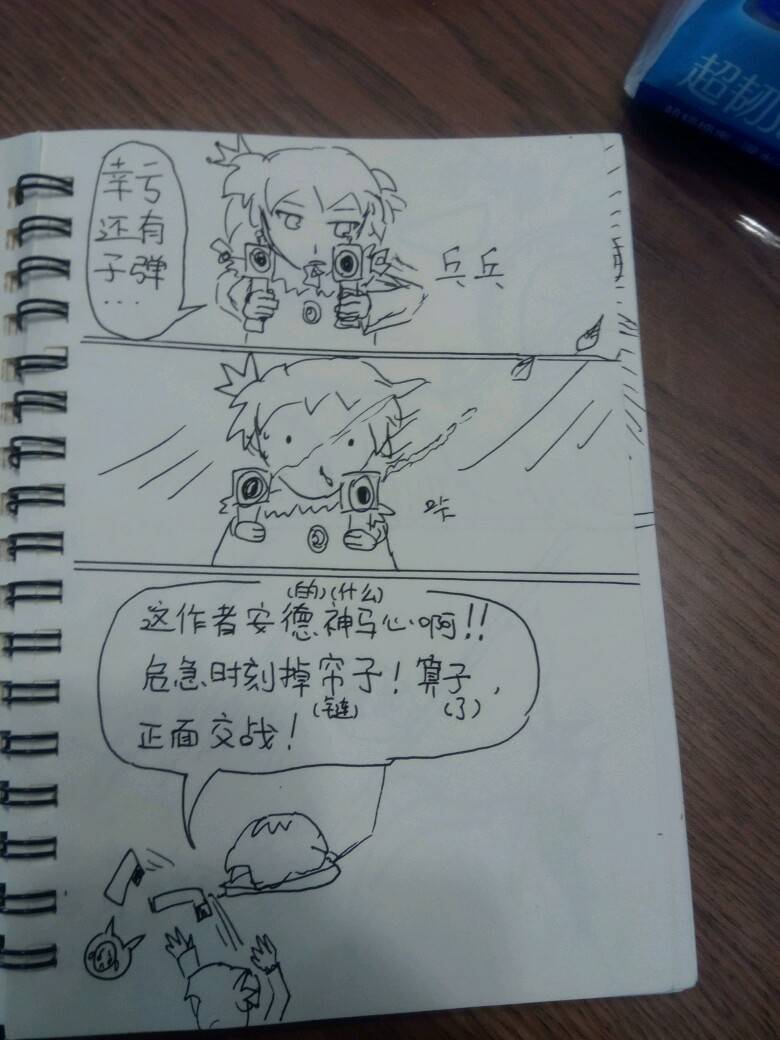 超韧
幸亏
还有
子弹
...
乒乓
咔
(的)(什么)
这作者安德神马心啊!!
危急时刻掉帘子!算子,
(链) (了)
正面交战!